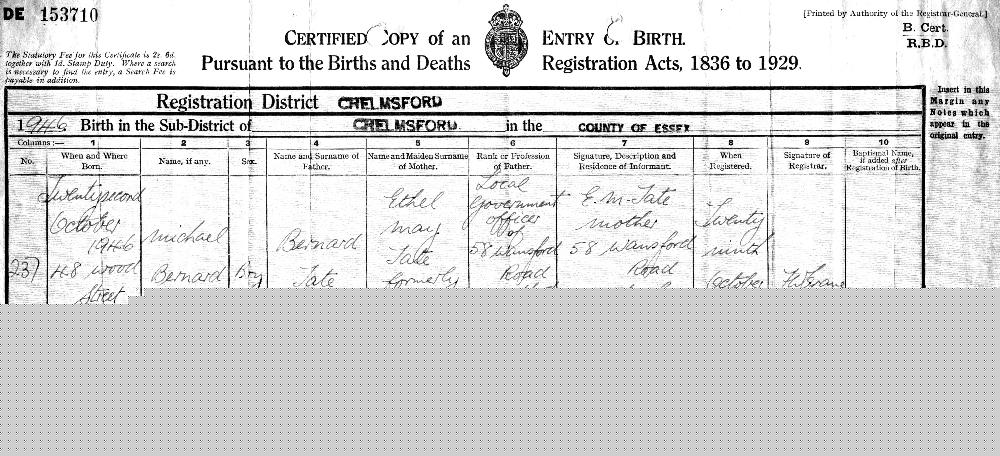 DE 153710
[Printed by Authority of the Registrar-General.]
B. Cert.
R.B.D.
CERTIFIED COPY of an ENTRY OF BIRTH.
Pursuant to the Births and Deaths Registration Acts, 1836 to 1929.
The Statutory Fee for this Certificate is 2s. 6d.
together with 1d. Stamp Duty. Where a search
is necessary to find the entry, a Search Fee is
payable in addition.
Insert in this
Margin any
Notes which
appear in the
original entry.
Registration District CHELMSFORD
1946 Birth in the Sub-District of CHELMSFORD in the COUNTY OF ESSEX
Columns:— 1 2 3 4 5 6 7 8 9 10
No. When and Where Born. Name, if any. Sex. Name and Surname of Father. Name and Maiden Surname of Mother. Rank or Profession of Father. Signature, Description and Residence of Informant. When Registered. Signature of Registrar. Baptismal Name, if added after Registration of Birth.
237
Twenty second
October
1946
48 Wood
Street
Michael
Bernard
Boy
Bernard
Tate
Ethel
May
Tate
formerly
Local
Government
officer
of
58 Wansford
Road
E. M. Tate
mother
58 Wansford
Road
Twenty
ninth
October